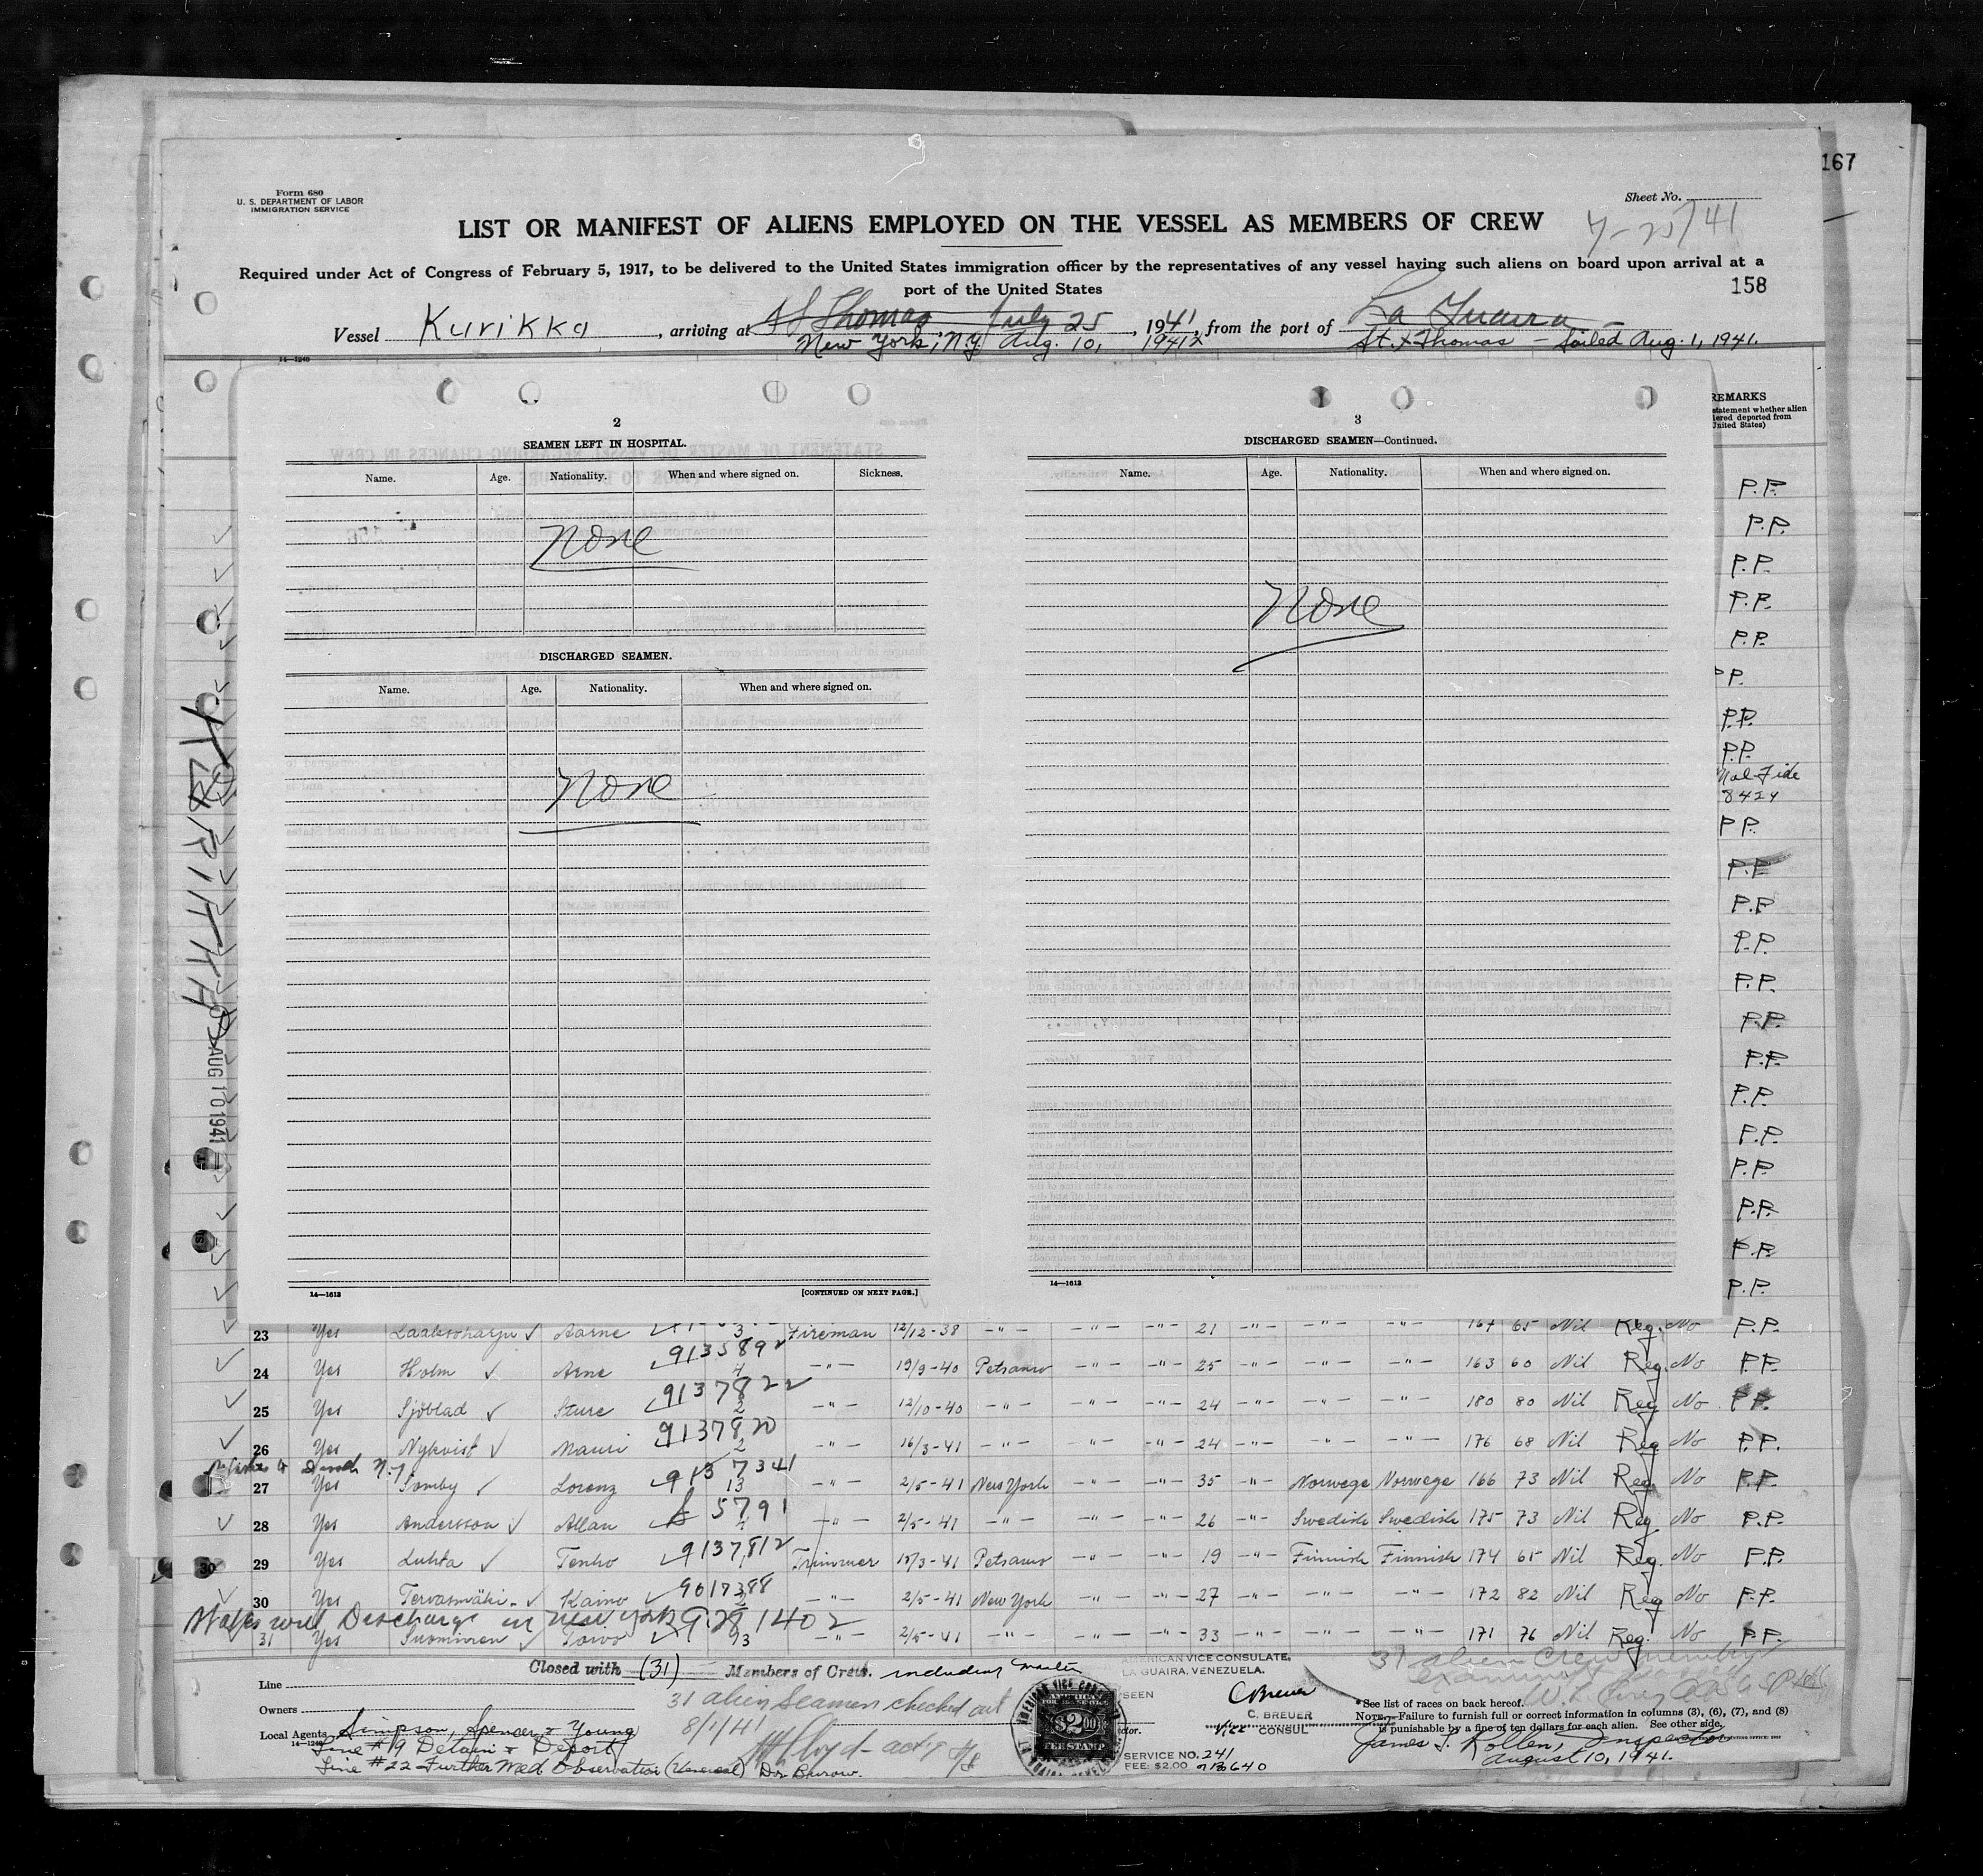 167
Form 680
U. S. DEPARTMENT OF LABOR
IMMIGRATION SERVICE
Sheet No.
LIST OR MANIFEST OF ALIENS EMPLOYED ON THE VESSEL AS MEMBERS OF CREW
7-25/41
Required under Act of Congress of February 5, 1917, to be delivered to the United States immigration officer by the representatives of any vessel having such aliens on board upon arrival at a
port of the United States
158
Vessel Kurikka, arriving at St Thomas July 25, 1941, from the port of La Guaira
New York, N.Y Aug. 10, 1941 St. Thomas - Sailed Aug. 1, 1941.
14-1240
REMARKS
statement whether alien
dered deported from
United States)
2
SEAMEN LEFT IN HOSPITAL.
Name. Age. Nationality. When and where signed on. Sickness.
None
DISCHARGED SEAMEN.
Name. Age. Nationality. When and where signed on.
None
14—1612
[CONTINUED ON NEXT PAGE.]
3
DISCHARGED SEAMEN—Continued.
Name. Age. Nationality. When and where signed on.
None
14—1612
P.P.
P.P.
P.P.
P.P.
P.P.
P.P.
P.P.
P.P.
Mal-Fide
8424
P.P.
P.P.
P.P.
P.P.
P.P.
P.P.
P.P.
P.P.
P.P.
P.P.
P.P.
P.P.
P.P.
KURIKKA
AUG 10 1941
23 Yes Aarne 3 Fireman 12/12-38 -"- -"- -"- 21 -"- -"- -"- 167 65 Nil Reg. No P.P.
24 Yes Holm Arne 9135892 4 -"- 19/9-40 Petsamo -"- -"- 25 -"- -"- -"- 163 60 Nil Reg. No P.P.
25 Yes Sjöblad Sture 9137822 2 -"- 12/10-40 -"- -"- -"- 24 -"- -"- -"- 180 80 Nil Reg No P.P.
26 Yes Nykvist Mauri 9137820 2 -"- 16/3-41 -"- -"- -"- 24 -"- -"- -"- 176 68 Nil Reg. No P.P.
27 Yes Lorenz 9137341 13 -"- 2/5-41 New York -"- 35 -"- Norwege Norwege 166 73 Nil Reg. No P.P.
28 Yes Andersson Allan 5791 -"- 2/5-41 -"- -"- -"- 26 -"- Swedish Swedish 175 73 Nil Reg No P.P.
29 Yes Luhta Tenho 9137812 1 Trimmer 15/3-41 Petsamo -"- -"- 19 -"- Finnish Finnish 174 65 Nil Reg. No P.P.
30 Yes Kaino 9017388 2 -"- 2/5-41 New York -"- -"- 27 -"- -"- -"- 172 82 Nil Reg No P.P.
will Discharge in New York
31 Yes Suominen Toivo 93 -"- 2/5-41 -"- -"- -"- 33 -"- -"- -"- 171 76 Nil Reg. No P.P.
Closed with (31) Members of Crew. including master
31 alien Crew members
examined
Line
Owners
31 alien Seamen checked out
8/1/41
Local Agents Simpson, Spence & Young
14-1240
Line #19 Detain & Deport
Line #22 Further Med Observation (Venereal) Dr. Burow.
AMERICAN VICE CONSULATE,
LA GUAIRA, VENEZUELA.
SEEN
C Breuer
C. BREUER
Vice CONSUL
SERVICE NO. 241
FEE: $2.00
$2.00
FEE STAMP
*See list of races on back hereof.
NOTE.—Failure to furnish full or correct information in columns (3), (6), (7), and (8)
is punishable by a fine of ten dollars for each alien. See other side.
James S. Kollen, Inspector
August 10, 1941.